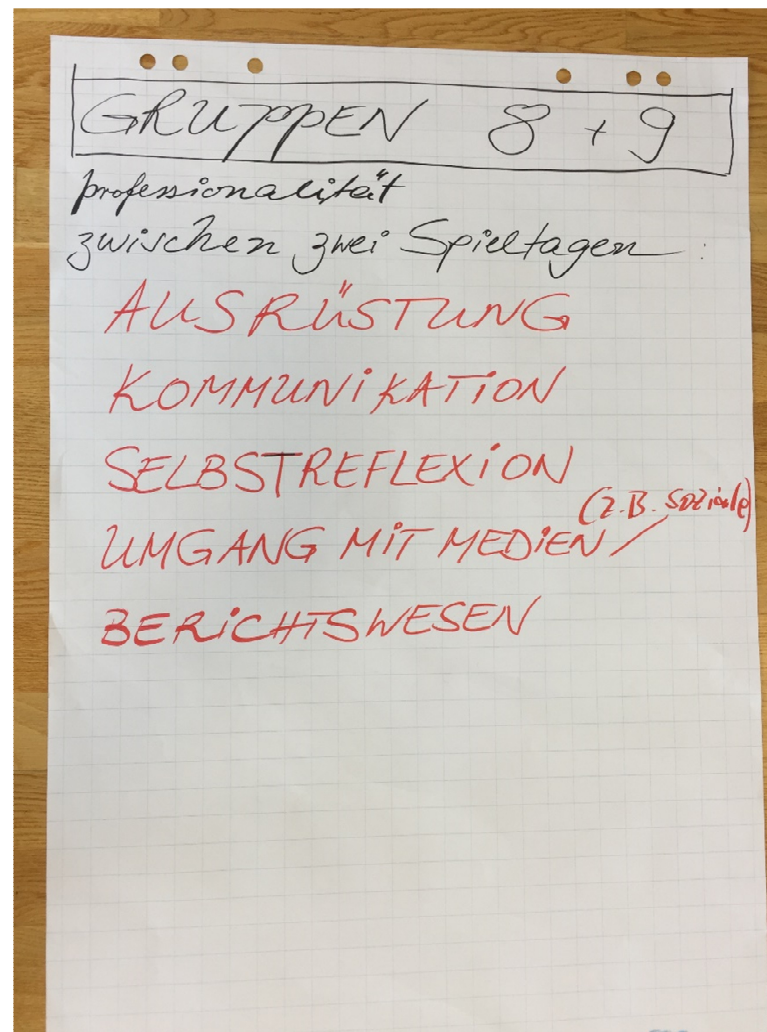 GRUPPEN 8 + 9
professionalität
zwischen zwei Spieltagen :
AUSRÜSTUNG
KOMMUNiKATiON
SELBSTREFLEXiON
(z.B. Soziale)
UMGANG MiT MEDiEN
BERiCHTSWESEN